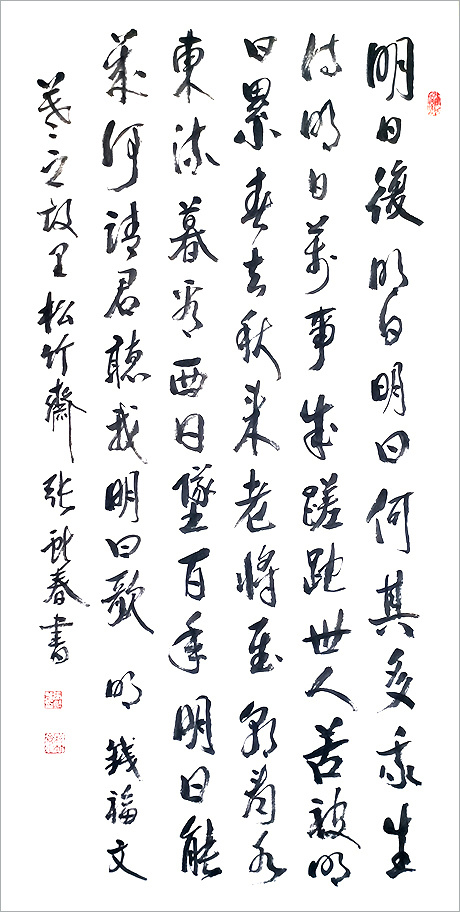 明日復明日明日何其多我生
待明日萬事成蹉跎世人苦被明
日累春去秋來老將至朝看水
東流暮看西日墜百年明日能
幾何請君聽我明日歌 明 錢福文
羲之故里松竹齋 張春書